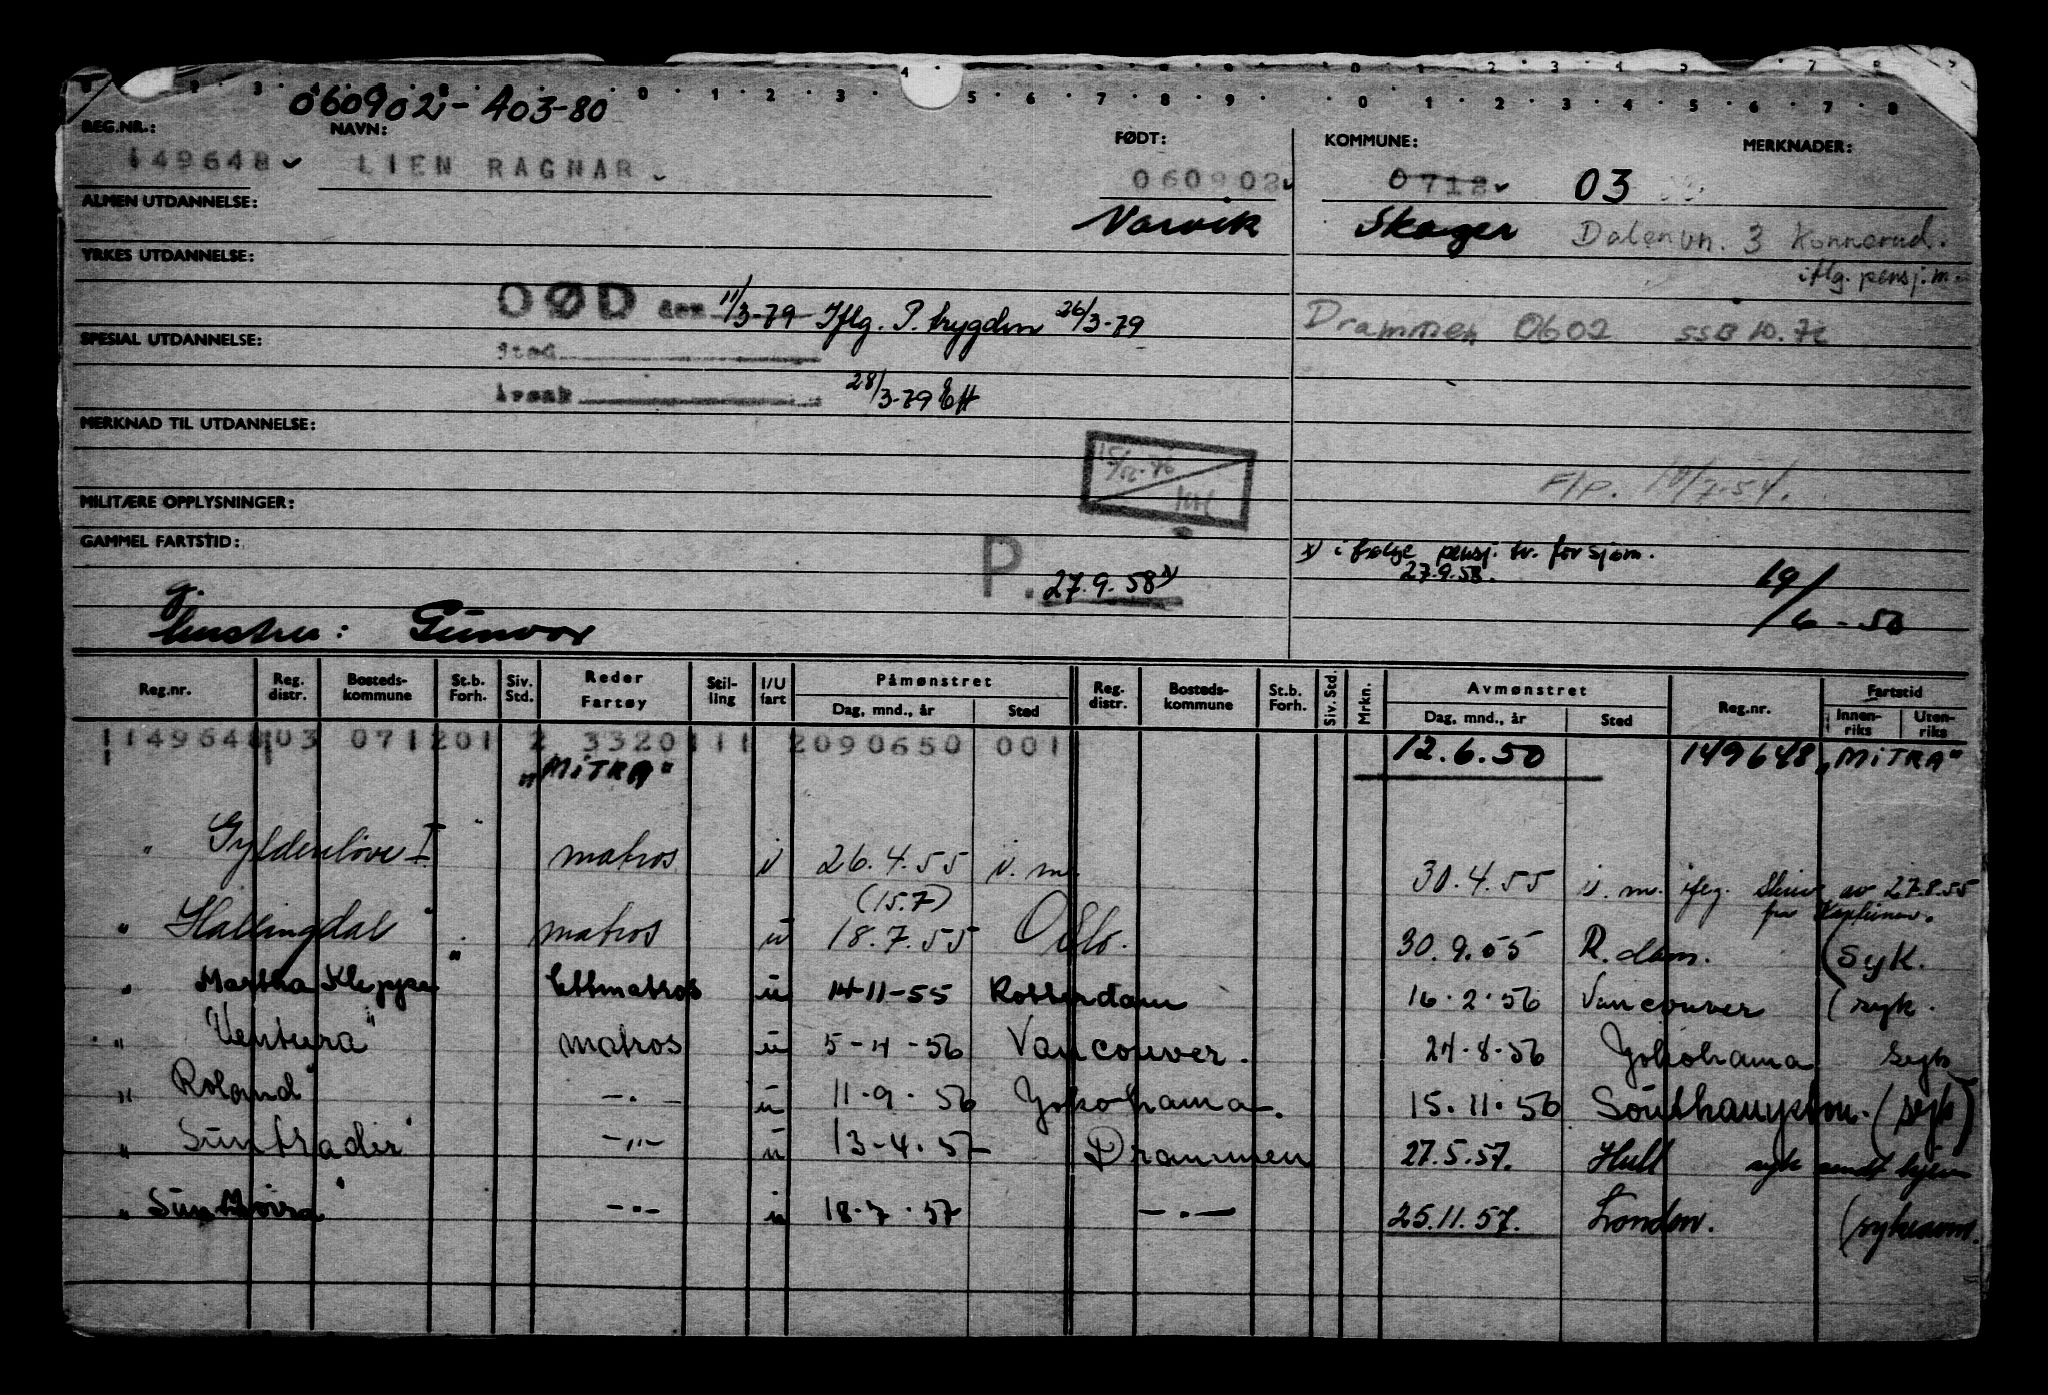 060902 - 403-80
REG.NR.: NAVN: FØDT: KOMMUNE: MERKNADER:
149648 LIEN RAGNAR 060902 0712 03
ALMEN UTDANNELSE: Narvik Skoger Dalenvn. 3 Konnerud.
iflg. pensj.m.
YRKES UTDANNELSE:
DØD den 11/3-79 Iflg. P. trygden 26/3-79 Drammen 0602 SSB 10.
SPESIAL UTDANNELSE: Sted
Årsak 28/3-79
MERKNAD TIL UTDANNELSE:
15/12-76
F/p. 19/7-54.
MILITÆRE OPPLYSNINGER:
GAMMEL FARTSTID: x) i følge pensj. tr. for sjøm.
P. 27.9.58 x) 27.9.58.
g. 19/6-50
hustru: Gunvor
Reg.nr. Reg. distr. Bosteds-kommune St.b. Forh. Siv. Std. Reder Fartøy Stil-ling I/U fart Påmønstret Dag, mnd., år Sted Reg. distr. Bosteds-kommune St.b. Forh. Siv. Std. Mrkn. Avmønstret Dag, mnd., år Sted Reg.nr. Fartstid Innen-riks Uten-riks
1149648 03 071201 2 3320111 2090650 001 12.6.50 149648 "MITRA"
"MITRA"
" Gyldenløve I" matros i 26.4.55 i. m. 30.4.55 i. m. iflg. skriv av 27.8.55
(15.7)
" Hallingdal" matros u 18.7.55 Oslo. 30.9.55 R.dam. (syk.
" Martha Kleppe" lettmatros u 14-11-55 Rotterdam 16.2.56 Vancouver (syk.
" Ventura" matros u 5-4-56 Vancouver. 24.8.56 Yokohama syk
" Roland" -"- u 11.9.56 Yokohama. 15.11.56 Southampton. (syk)
" Suntrader" -"- u 13-4.57 Drammen 27.5.57. Hull syk sendt hjem
" -"- u 18.7.57 -"- 25.11.57. London.